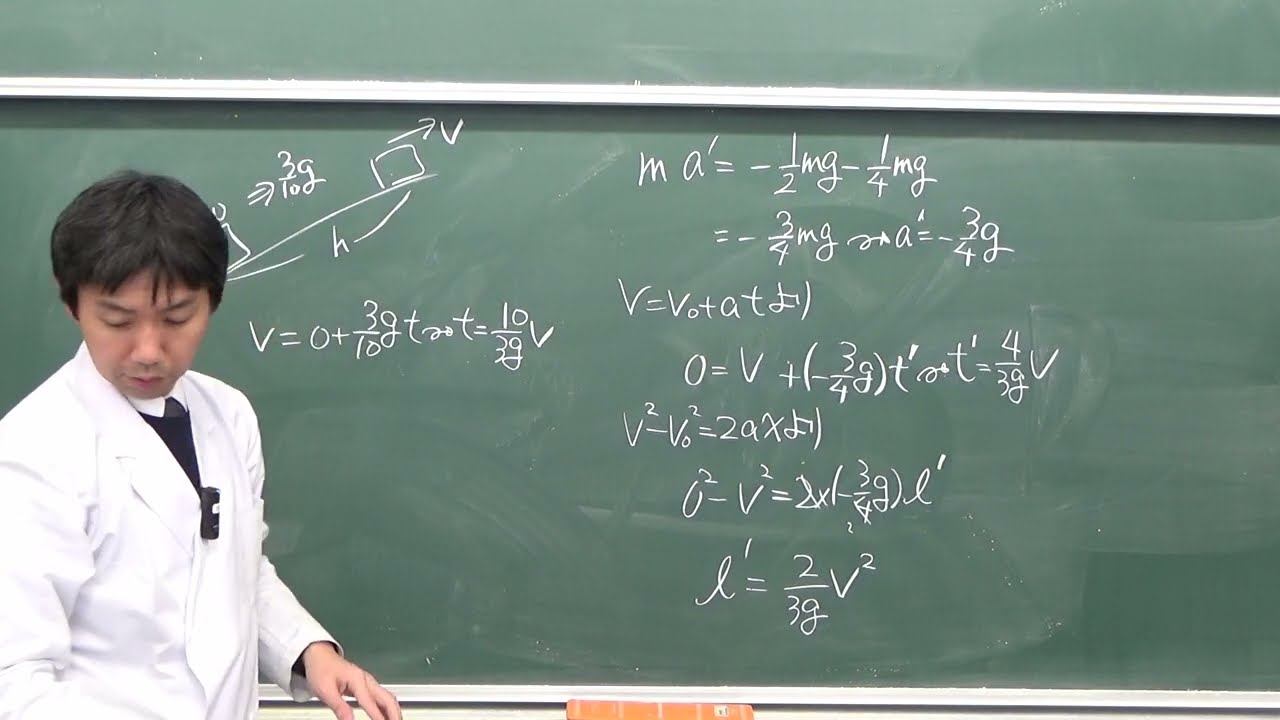 V
⇒ 3/10 g
0
h
V = 0 + 3/10 g t ⇝ t = 10/3g V
m a' = - 1/2 mg - 1/4 mg
= - 3/4 mg ⇝ a' = - 3/4 g
V = V₀ + a t より
0 = V + (- 3/4 g) t' ⇝ t' = 4/3g V
V² - V₀² = 2 a x より
0² - V² = 2 × (- 3/4 g) l'
2
l' = 2/3g V²